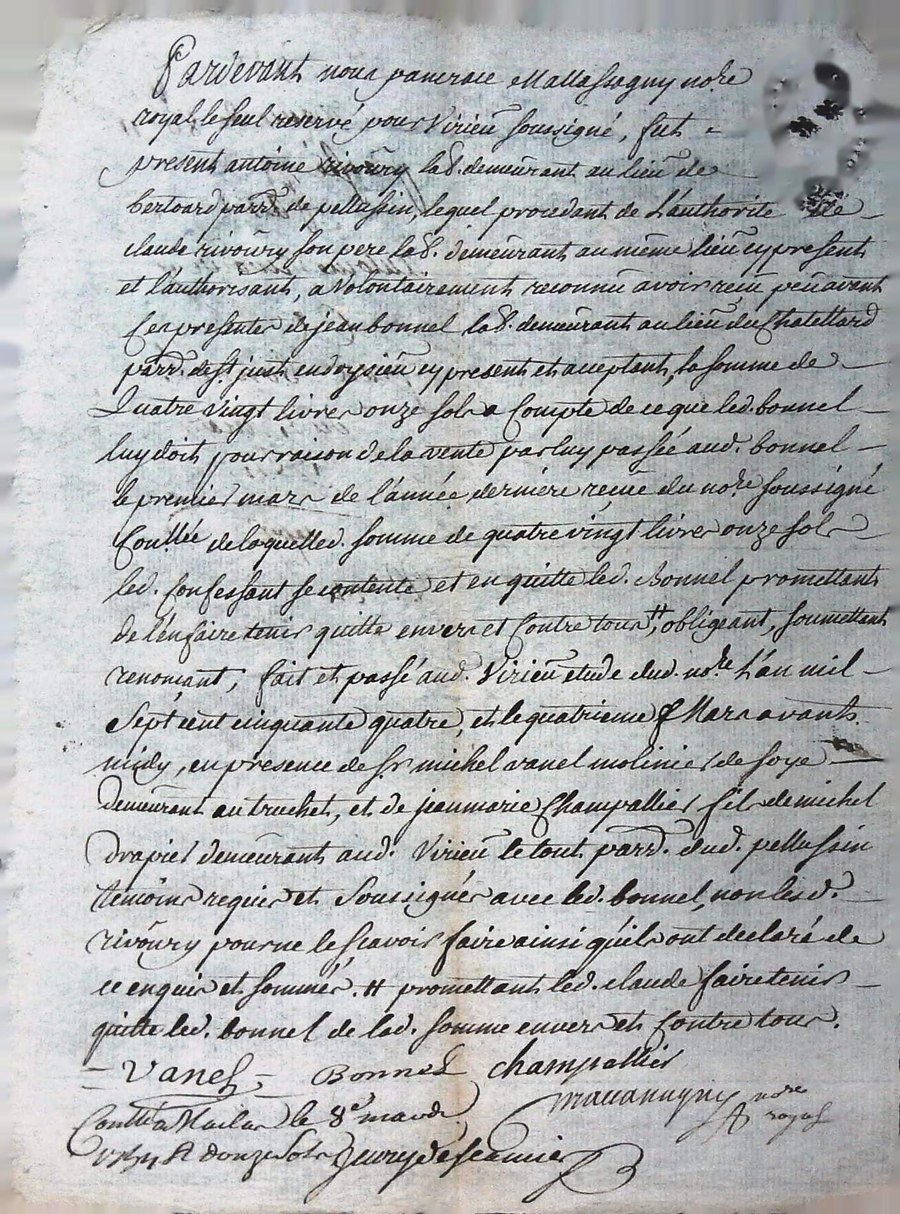 Pardevant nous pancrace Mallassagny no.re
royal le seul reservé pour Virieu soussigné, fut
present antoine rivoüry la.8. demeurant au lieu de
bertoard parr.e de pellussin, lequel procedant de L'authorité de
claude rivoüry son pere la.8. demeurant au même lieu cy present
et L'authorisant, a Volontairement reconnu avoir reçu peu avant
Ces presentes de jean bonnel la.8. demeurant au lieu du Chatellard
parr.e de S.t just en doysieu cy present et acceptant, la somme de
Quatre vingt livres onze sols a Compte de ce que led. bonnel
luy doit pour raison de la vente par luy passée aud. bonnel
le premier mars de l'année derniere reçue du no.re soussigné
Con.llée de laquelled. somme de quatre vingt livres onze sols
led. Confessant se contente et en quitte led. bonnel promettant
de l'en faire tenir quitte envers et Contre tous #, obligeant, soumettant
renonçant, fait et passé aud. Virieu etude dud. no.re L'an mil
Sept cent cinquante quatre, et le quatrieme Mars avant
midy, en presence de S.r michel vanel molinier de soye
demeurant au truchet, et de jean marie Champallier fils de michel
drapier demeurant aud. Virieu le tout parr.e dud. pellussin
temoins requis et Soussignés avec led. bonnel, non lesd.
rivoüry pour ne le scavoir faire ainsi qu'ils ont declaré de
ce enquis et sommés. # promettant led. claude faire tenir
quitte led. bonnel de lad. somme envers et Contre tous.
= Vanel = Bonnel champallier
no.re
royal
Con.llé a le 8.e mars
douze sols